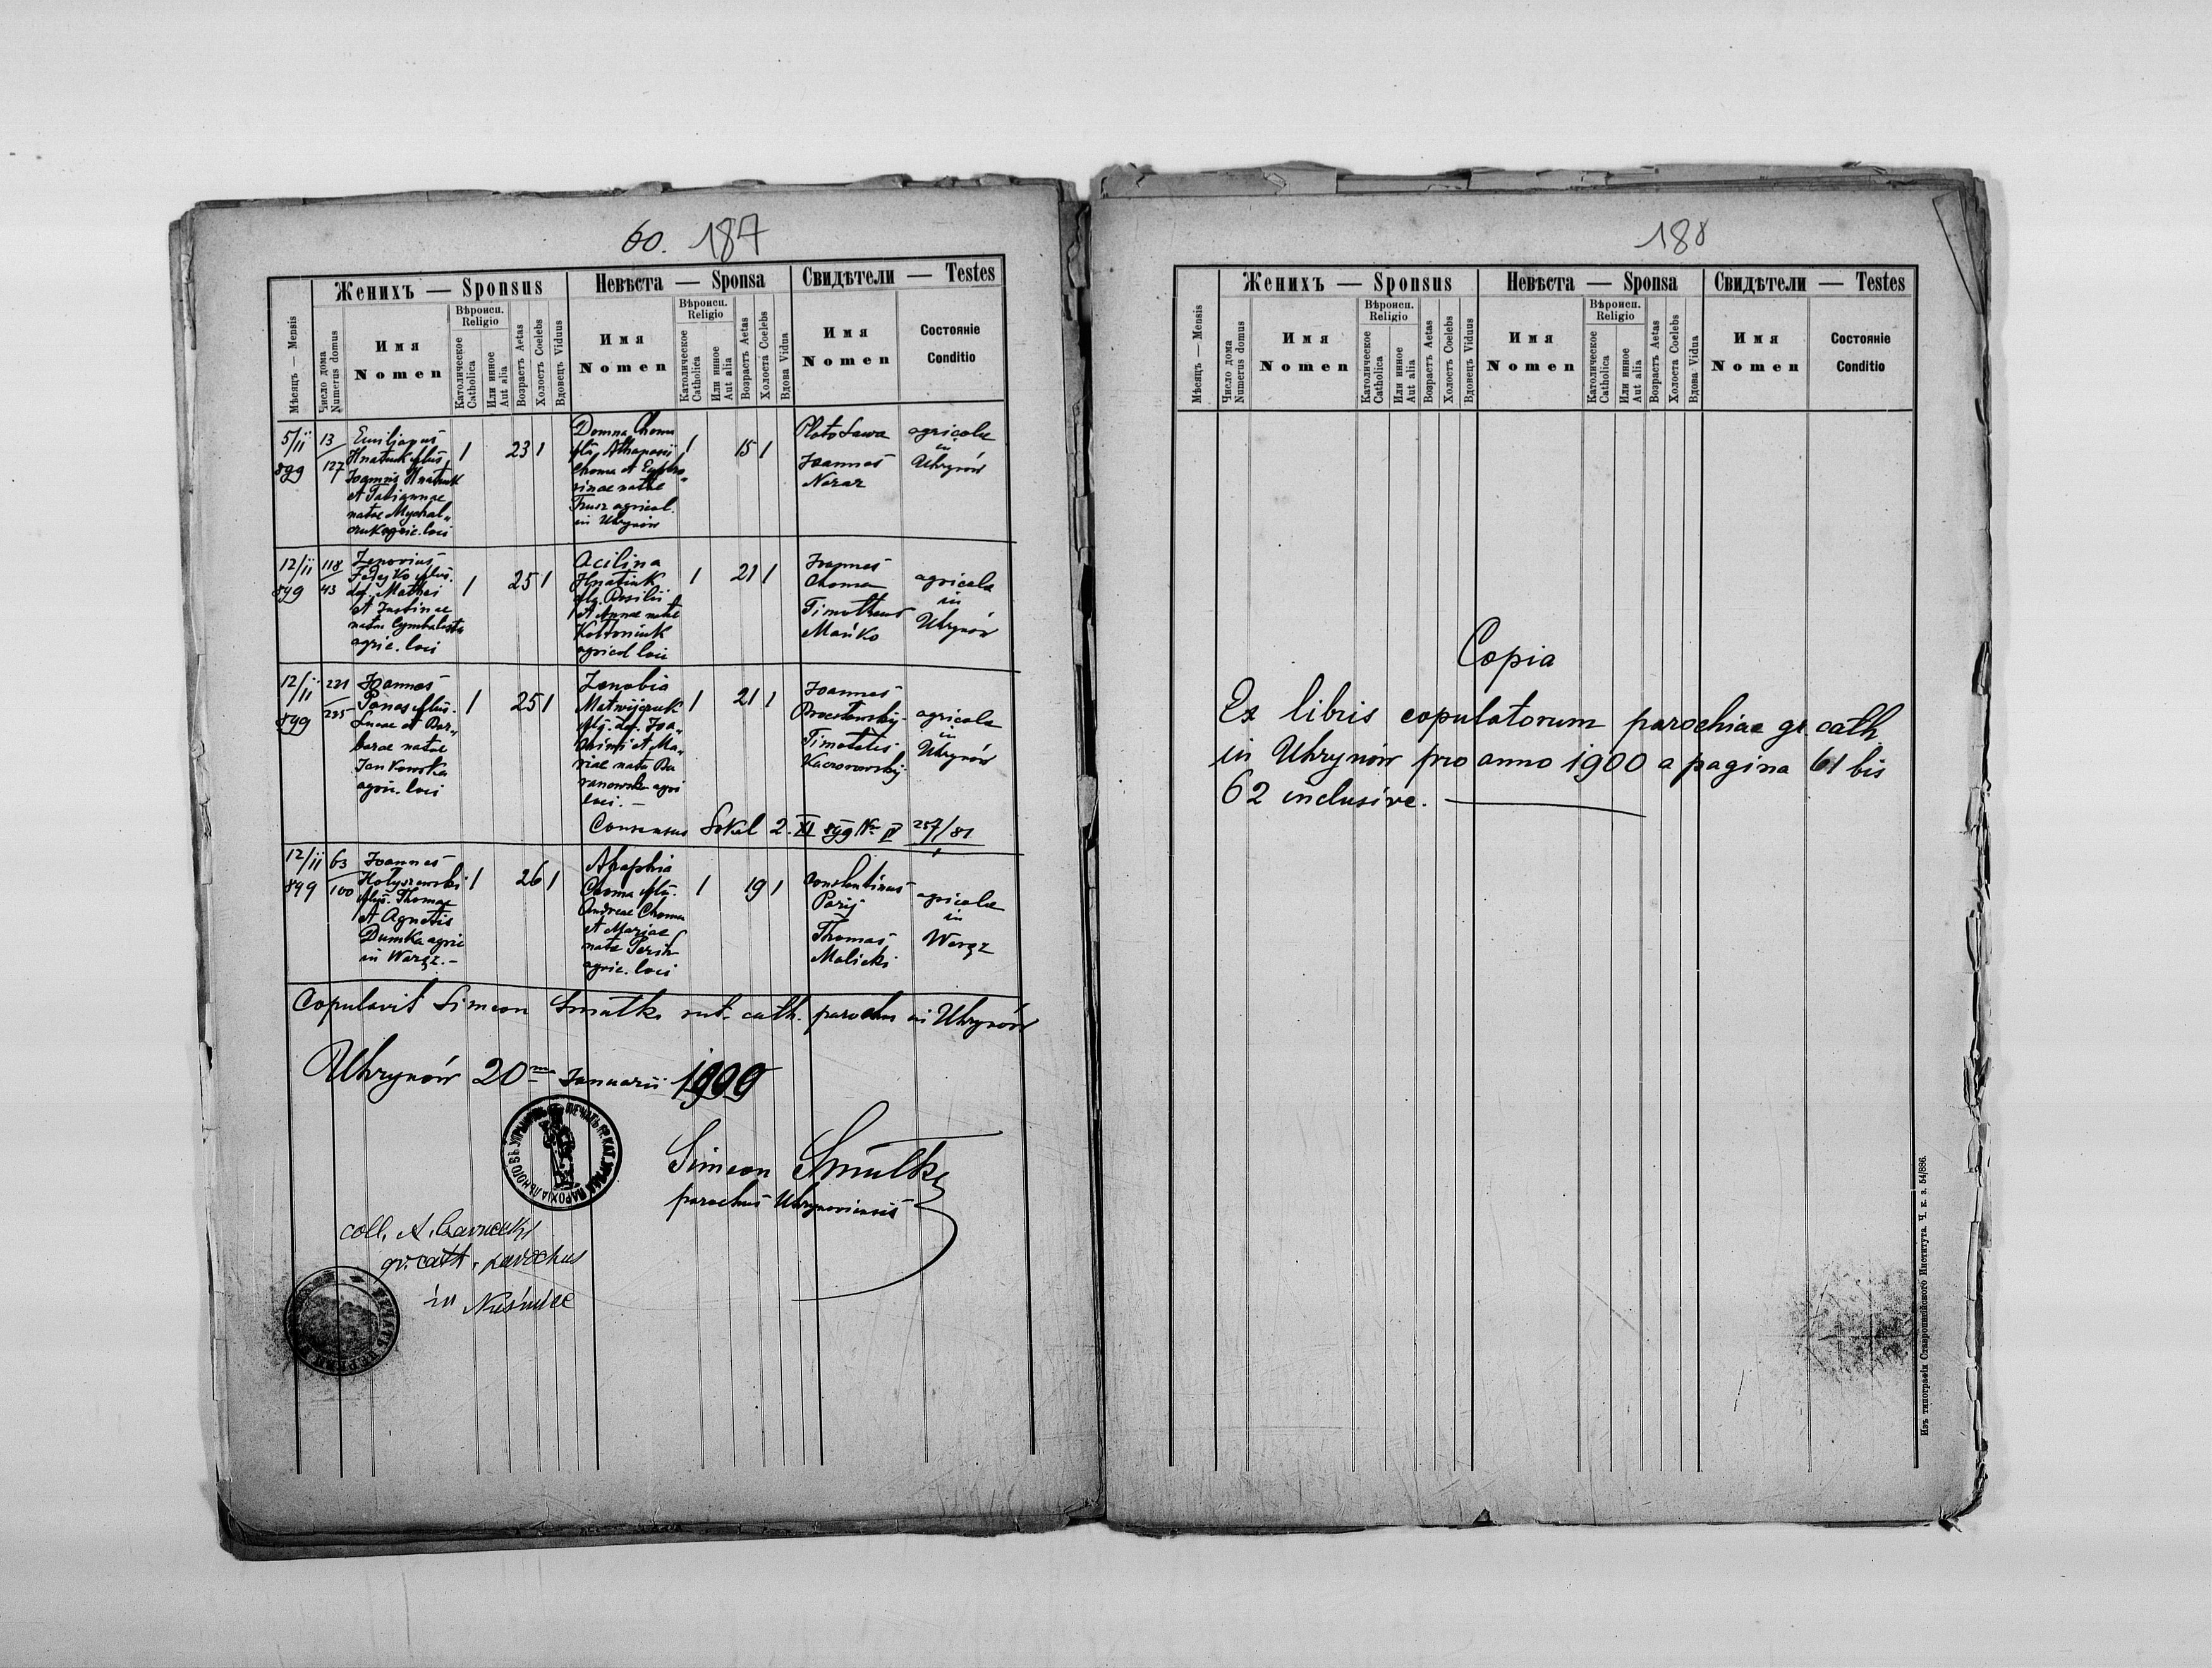 60. 187
Женихъ — Sponsus
Невѣста — Sponsa
Свидѣтели — Testes
Мѣсяцъ — Mensis
Число дома
Numerus domus
Имя
Nomen
Вѣроисп.
Religio
Католическое
Catholica
Или инное
Aut alia
Возрастъ Aetas
Холостъ Coelebs
Вдовецъ Viduus
Имя
Nomen
Вѣроисп.
Religio
Католическое
Catholica
Или инное
Aut alia
Возрастъ Aetas
Холоста Coelebs
Вдова Vidua
Имя
Nomen
Состоянiе
Conditio
5/II
899
13
127
Emiljanus
Hnatiuk filius
Joannis Hnatiuk
et Tatiannae
natae Mychal„
czuk agric. loci
1
23 1
Domna Choma
filia Athanasii
Choma et Euphro„
sinae natae
Trusz agricol.
in Uhrynów
1
15 1
Plato Sawa
Joannes
Nazar
agricolae
in
Uhrynów
12/II
899
118
43
Zenovius
Fedejko filius
leg. Mathei
et Justinae
natae Cymbalista
agric. loci
1
25 1
Acilina
Hnatiuk
filia Basilii
et Annae natae
Kostoniuk
agricol loci
1
21 1
Joannes
Choma
Timotheus
Mańko
agricolae
in
Uhrynów
12/II
899
221
235
Joannes
Panas filius
Lucae et Bar„
barae natae
Jankowska
agric. loci
1
25 1
Zenobia
Matwijczuk
filia leg. Joa„
chimi et Ma„
riae nata Ba
ranowska agri
loci. —
1
21 1
Joannes
Timotheus
Kaczorowskij
agricolae
in
Uhrynów
Consensus Sokal 2. XI 899 No IV 257/81
12/II
899
63
100
Joannes
Hołyszewski
filius Thomae
et Agnetis
Dumka agric
in Waręż. —
1
26 1
Ahaphia
Choma filia
Andreae Choma
et Mariae
nata
agric. loci
1
19 1
Constantinus
Parij
Thomas
Malicki
agricolae
in
Waręż
Copulavit Simeon Smulka rut. cath. parochus in Uhrynów
Uhrynów 20ma Januarii 1900
Simeon Smulka
parochus Uhrynoviensis
coll. A. Czarnecki
gr. cath. parochus
in Nuśmice
188
Женихъ — Sponsus
Невѣста — Sponsa
Свидѣтели — Testes
Мѣсяцъ — Mensis
Число дома
Numerus domus
Имя
Nomen
Вѣроисп.
Religio
Католическое
Catholica
Или инное
Aut alia
Возрастъ Aetas
Холостъ Coelebs
Вдовецъ Viduus
Имя
Nomen
Вѣроисп.
Religio
Католическое
Catholica
Или инное
Aut alia
Возрастъ Aetas
Холоста Coelebs
Вдова Vidua
Имя
Nomen
Состоянiе
Conditio
Copia
Ex libris copulatorum parochiae gr. cath.
in Uhrynów pro anno 1900 a pagina 61 bis
62 inclusive. —
Изъ типографiи Ставропигiйского Института. Ч. к. з. 54/886.